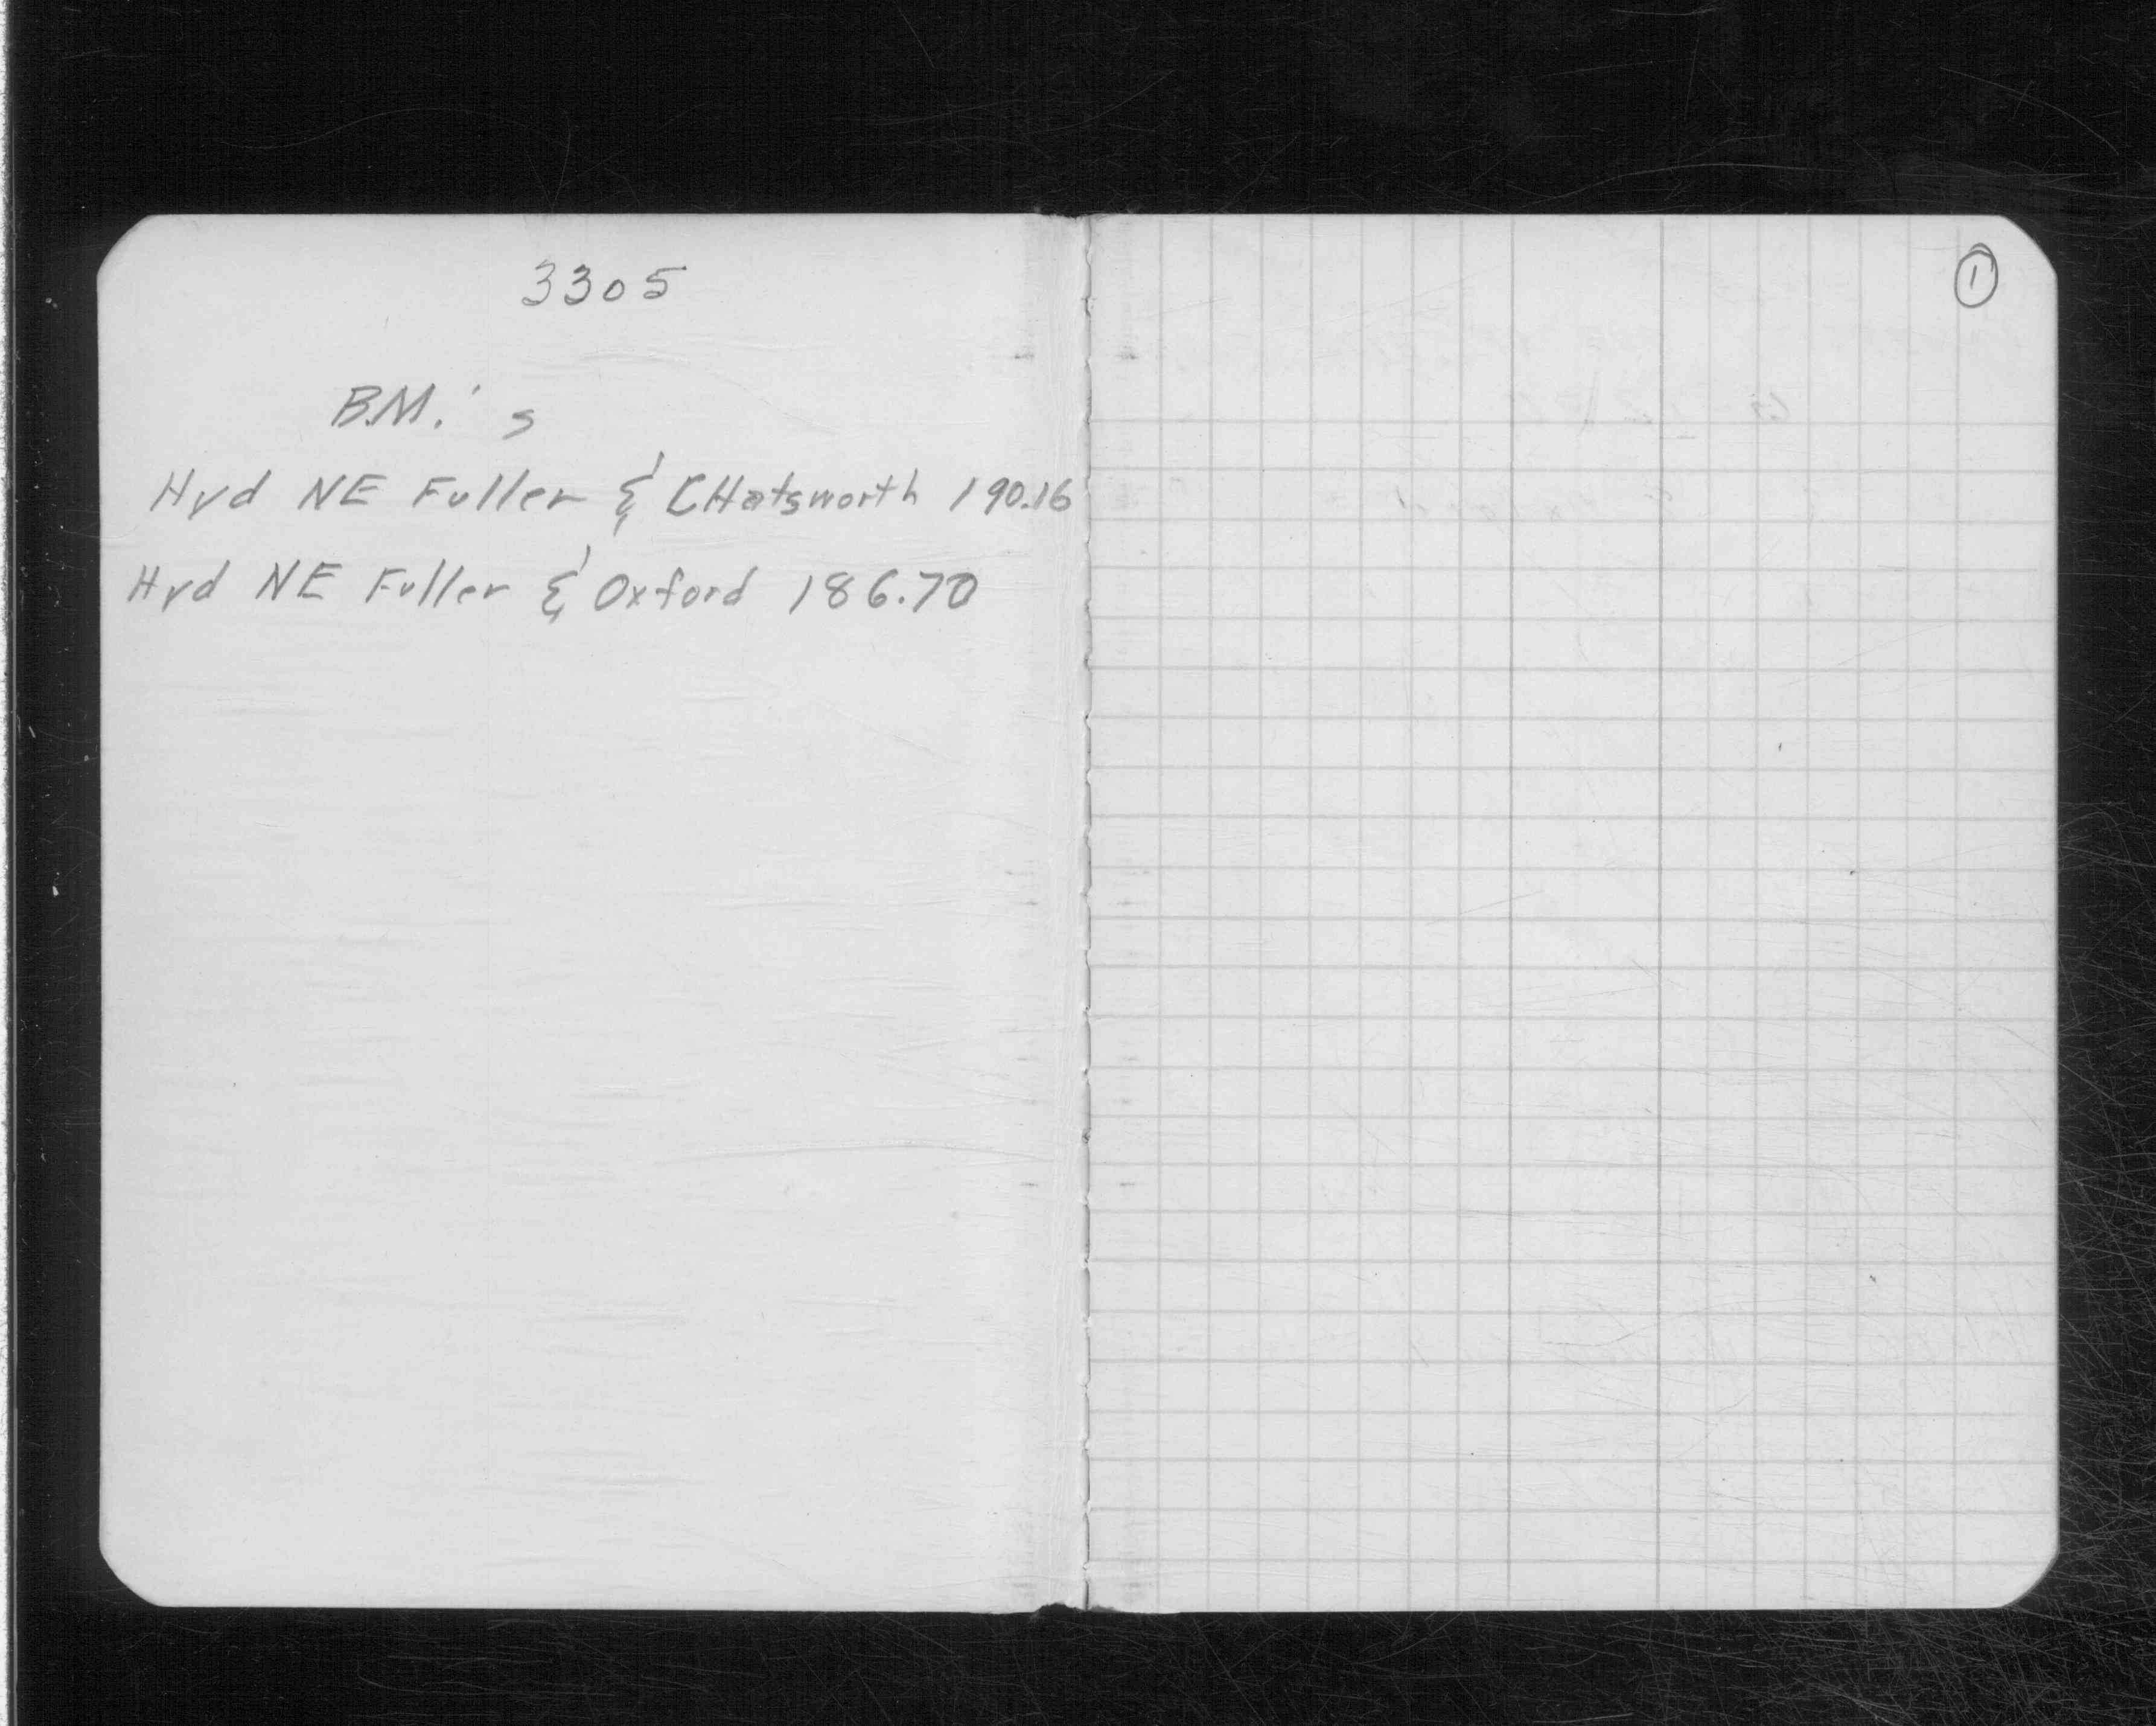 3305
B.M.'s
Hyd NE Fuller & CHatsworth 190.16
Hyd NE Fuller & Oxford 186.70
1